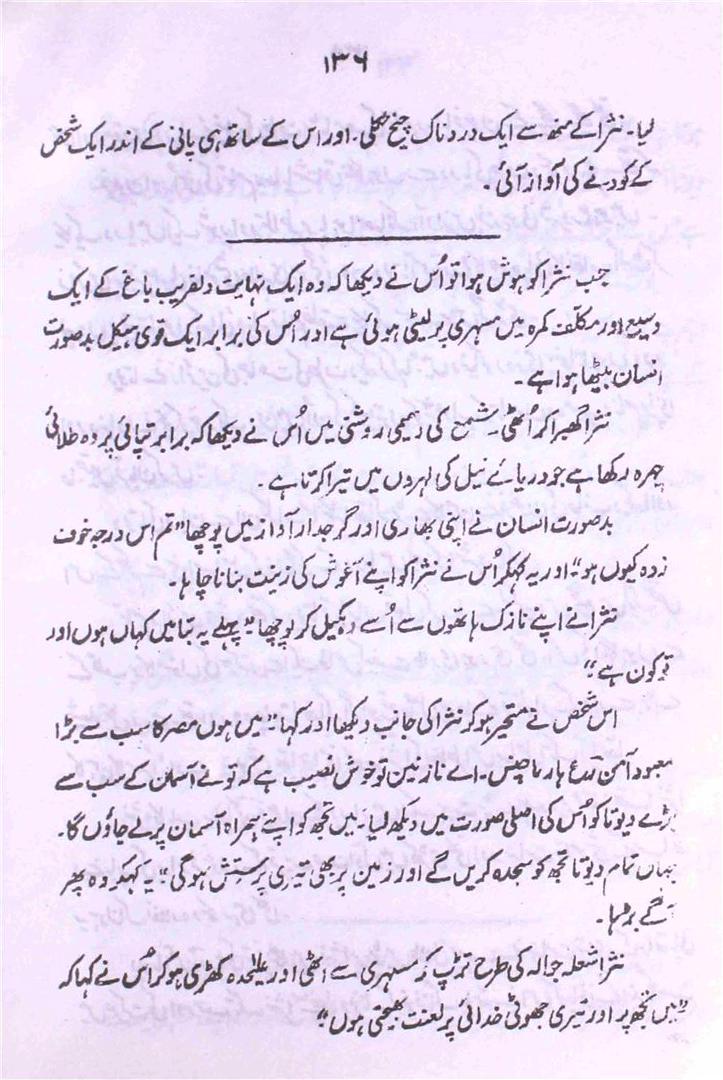 ۱۳۶
لیا۔ نثرا کے منھ سے ایک دردناک چیخ نکلی۔ اور اس کے ساتھ ہی پانی کے اندر ایک شخص
کے کودنے کی آواز آئی۔
جب نثرا کو ہوش ہوا تو اُس نے دیکھا کہ وہ ایک نہایت دلفریب باغ کے ایک
وسیع اور مکلّف کمرہ میں مسہری پر لیٹی ہوئی ہے اور اُس کی برابر ایک قوی ہیکل بدصورت
انسان بیٹھا ہوا ہے۔
نثرا گھبرا کر اُٹھی۔ شمع کی دھیمی روشنی میں اُس نے دیکھا کہ برابر تپائی پر وہ طلائی
چہرہ رکھا ہے جو دریائے نیل کی لہروں میں تیرا کرتا ہے۔
بدصورت انسان نے اپنی بھاری اور گرجدار آواز میں پوچھا "تم اس درجہ خوف
زدہ کیوں ہو" اور یہ کہکر اُس نے نثرا کو اپنے آغوش کی زینت بنانا چاہا۔
نثرا نے اپنے نازک ہاتھوں سے اُسے دھکیل کر پوچھا "پہلے یہ بتا میں کہاں ہوں اور
تو کون ہے"
اس شخص نے متحیر ہو کر نثرا کی جانب دیکھا اور کہا "میں ہوں مصر کا سب سے بڑا
معبود آمن ۔ اے نازنین تو خوش نصیب ہے کہ تو نے آسمان کے سب سے
بڑے دیوتا کو اُس کی اصلی صورت میں دیکھ لیا۔ میں تجھ کو اپنے ہمراہ آسمان پر لے جاؤں گا۔
جہاں تمام دیوتا تجھ کو سجدہ کریں گے اور زمین پر بھی تیری پرستش ہوگی" یہ کہکر وہ پھر
آگے بڑھا۔
نثرا شعلہ جوالہ کی طرح تڑپ کر مسہری سے اٹھی اور علیٰحدہ کھڑی ہو کر اُس نے کہا کہ
"میں تجھ پر اور تیری جھوٹی خدائی پر لعنت بھیجتی ہوں"